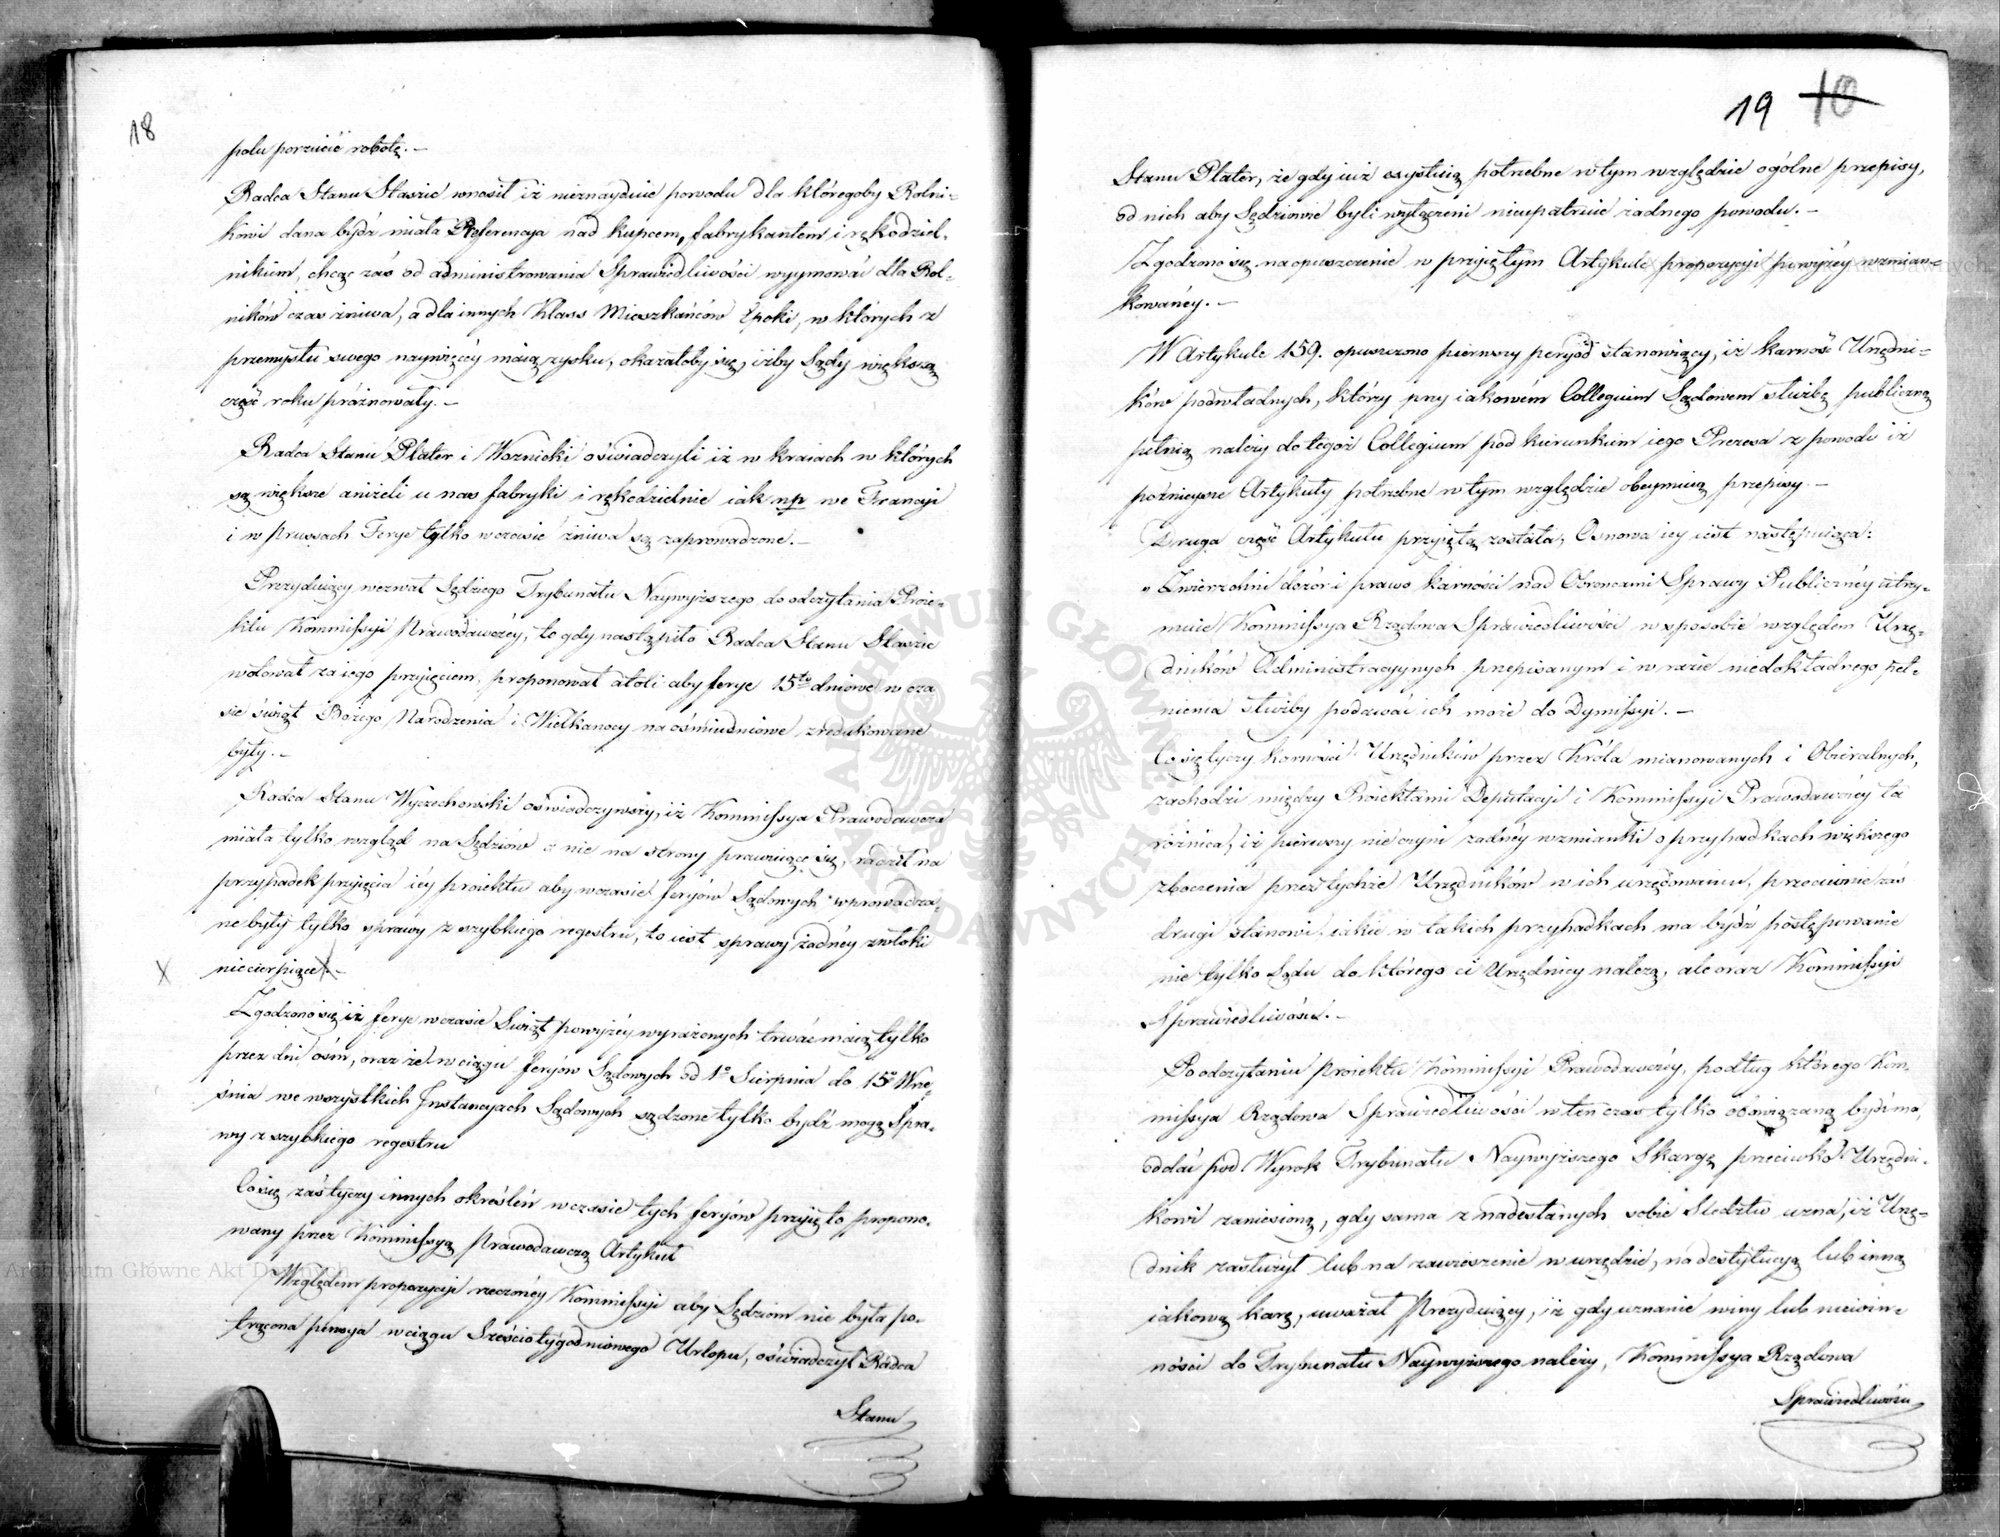 18
polu porzucić robotę. –
Radca Stanu Staszic wnosił iż nieznayduie powodu dla któregoby Rolni-
kowi dana bydź miała Preferencya nad kupcem, fabrykantem i rękodziel-
nikiem, chcąc zaś od administrowania Sprawiedliwości wyymować dla Rol-
ników czas żniwa, a dla innych Klass Mieszkańców Epoki, w których z
przemysłu swego naywięcéy maią zysku, okazałoby się, iżby Sądy większą
część roku próżnowały. –
Radca Stanu Plater i Woźnicki oświadczyli iż w kraiach w których
są większe aniżeli u nas fabryki i rękodzielnie iak np we Francyi
i w Prussach Ferye tylko w czasie żniwa są zaprowadzone. –
Prezyduiący wezwał Sędziego Trybunału Naywyższego do odczytania Proie-
ktu Kommissyi Prawodawczéy, to gdy nastąpiło Radca Stanu Staszic
wotował za iego przyięciem, proponował atoli aby ferye 15to dniowe w cza
sie świąt Bożego Narodzenia i Wielkanocy na ośmiudniowe zredukowane
były. –
Radca Stanu Wyczechowski oświadczywszy, iż Kommissya Prawodawcza
miała tylko wzgląd na Sędziów a nie na strony prawuiące się, radził na
przypadek przyięcia iéy proiektu aby w czasie feryów Sądowych wprowadza-
ne były tylko sprawy z szybkiego regestru, to iest sprawy żadnéy zwłoki
X niecierpiące X –
Zgodzono się iż ferye w czasie Świąt powyżéy wyrażonych trwać maią tylko
przez dni ośm, oraz że w ciągu feryów Sądowych od 1o Sierpnia do 15o Wrze-
śnia we wszystkich Instancyach Sądowych sądzone tylko bydź mogą Spra-
wy z szybkiego regestru
Co się zaś tyczy innych określeń w czasie tych feryów przyięto propono-
wany przez Kommissyą Prawodawczą Artykuł
Względem propozycyi rzeczonéy Kommissyi aby Sędziom nie była po-
trącona pensya w ciągu Sześciotygodniowego Urlopu, oświadczył Radca
Stanu
19 10
Stanu Plater, że gdy iuż exystuią potrzebne w tym względzie ogólne przepisy,
od nich aby Sędziowie byli wyłączeni nieupatruie żadnego powodu. –
Zgodzono się na opuszczenie w przyiętym Artykule propozycyi powyżéy wzmian-
kowanéy. –
W Artykule 159. opuszczono pierwszy peryód stanowiący, iż karność Urzędni-
ków podwładnych, którzy przy iakowém Collegium Sądowem służbę publiczną
pełnią należy do tegoż Collegium pod kierunkiem iego Prezesa z powodu iż
późnieysze Artykuły potrzebne w tym względzie obeymuią przepisy. –
Druga część Artykułu przyiętą została, Osnowa iey iest następuiąca:
„ Zwierzchni dozór i prawo karności nad Obrońcami Sprawy Publicznéy utrzy-
muie Kommissya Rządowa Sprawiedliwości w sposobie względem Urzę-
dników Administracyynych przepisanym i w razie niedokładnego peł-
nienia służby podawać ich może do Dymissyi. –
Co się tyczy karności Urzędników przez Króla mianowanych i Obieralnych,
zachodzi między Proiektami Deputacyi i Kommissyi Prawodawczéy ta
różnica, iż pierwszy nie czyni żadnéy wzmianki o przypadkach większego
zboczenia przez tychże Urzędników w ich urzędowaniu, przeciwnie zaś
drugi stanowi, iakie w takich przypadkach ma bydź postępowanie
nie tylko Sądu do którego ci Urzędnicy należą, ale oraz Kommissyi
Sprawiedliwości. –
Po odczytaniu proiektu Kommissyi Prawodawczéy, podług którego Kom-
missya Rządowa Sprawiedliwości w ten czas tylko obowiązaną bydź ma,
oddać pod Wyrok Trybunału Naywyższego Skargę przeciwko Urzędni-
kowi zaniesioną, gdy sama z nadesłanych sobie Śledztw uzna, iż Urzę-
dnik zasłużył lub na zawieszenie w urzędzie, na destytucyą lub inną
iakową karę, uważał Prezyduiący, iż gdy uznanie winy lub niewin-
ności do Trybunału Naywyższego należy, Kommissya Rządowa
Sprawiedliwości